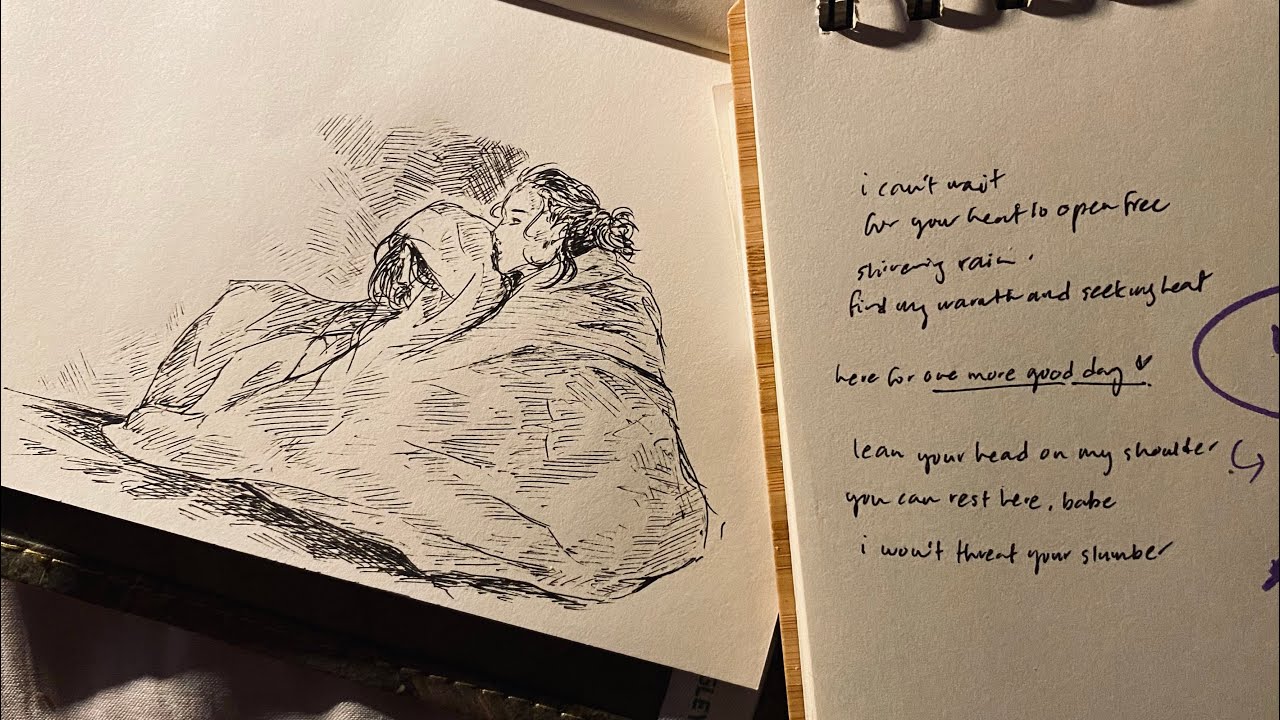 i can't wait
for your heat to open free
shivering rain.
find my warmth and seeking heat
here for one more good day
lean your head on my shoulder
you can rest here, babe
i won't threat your slumber